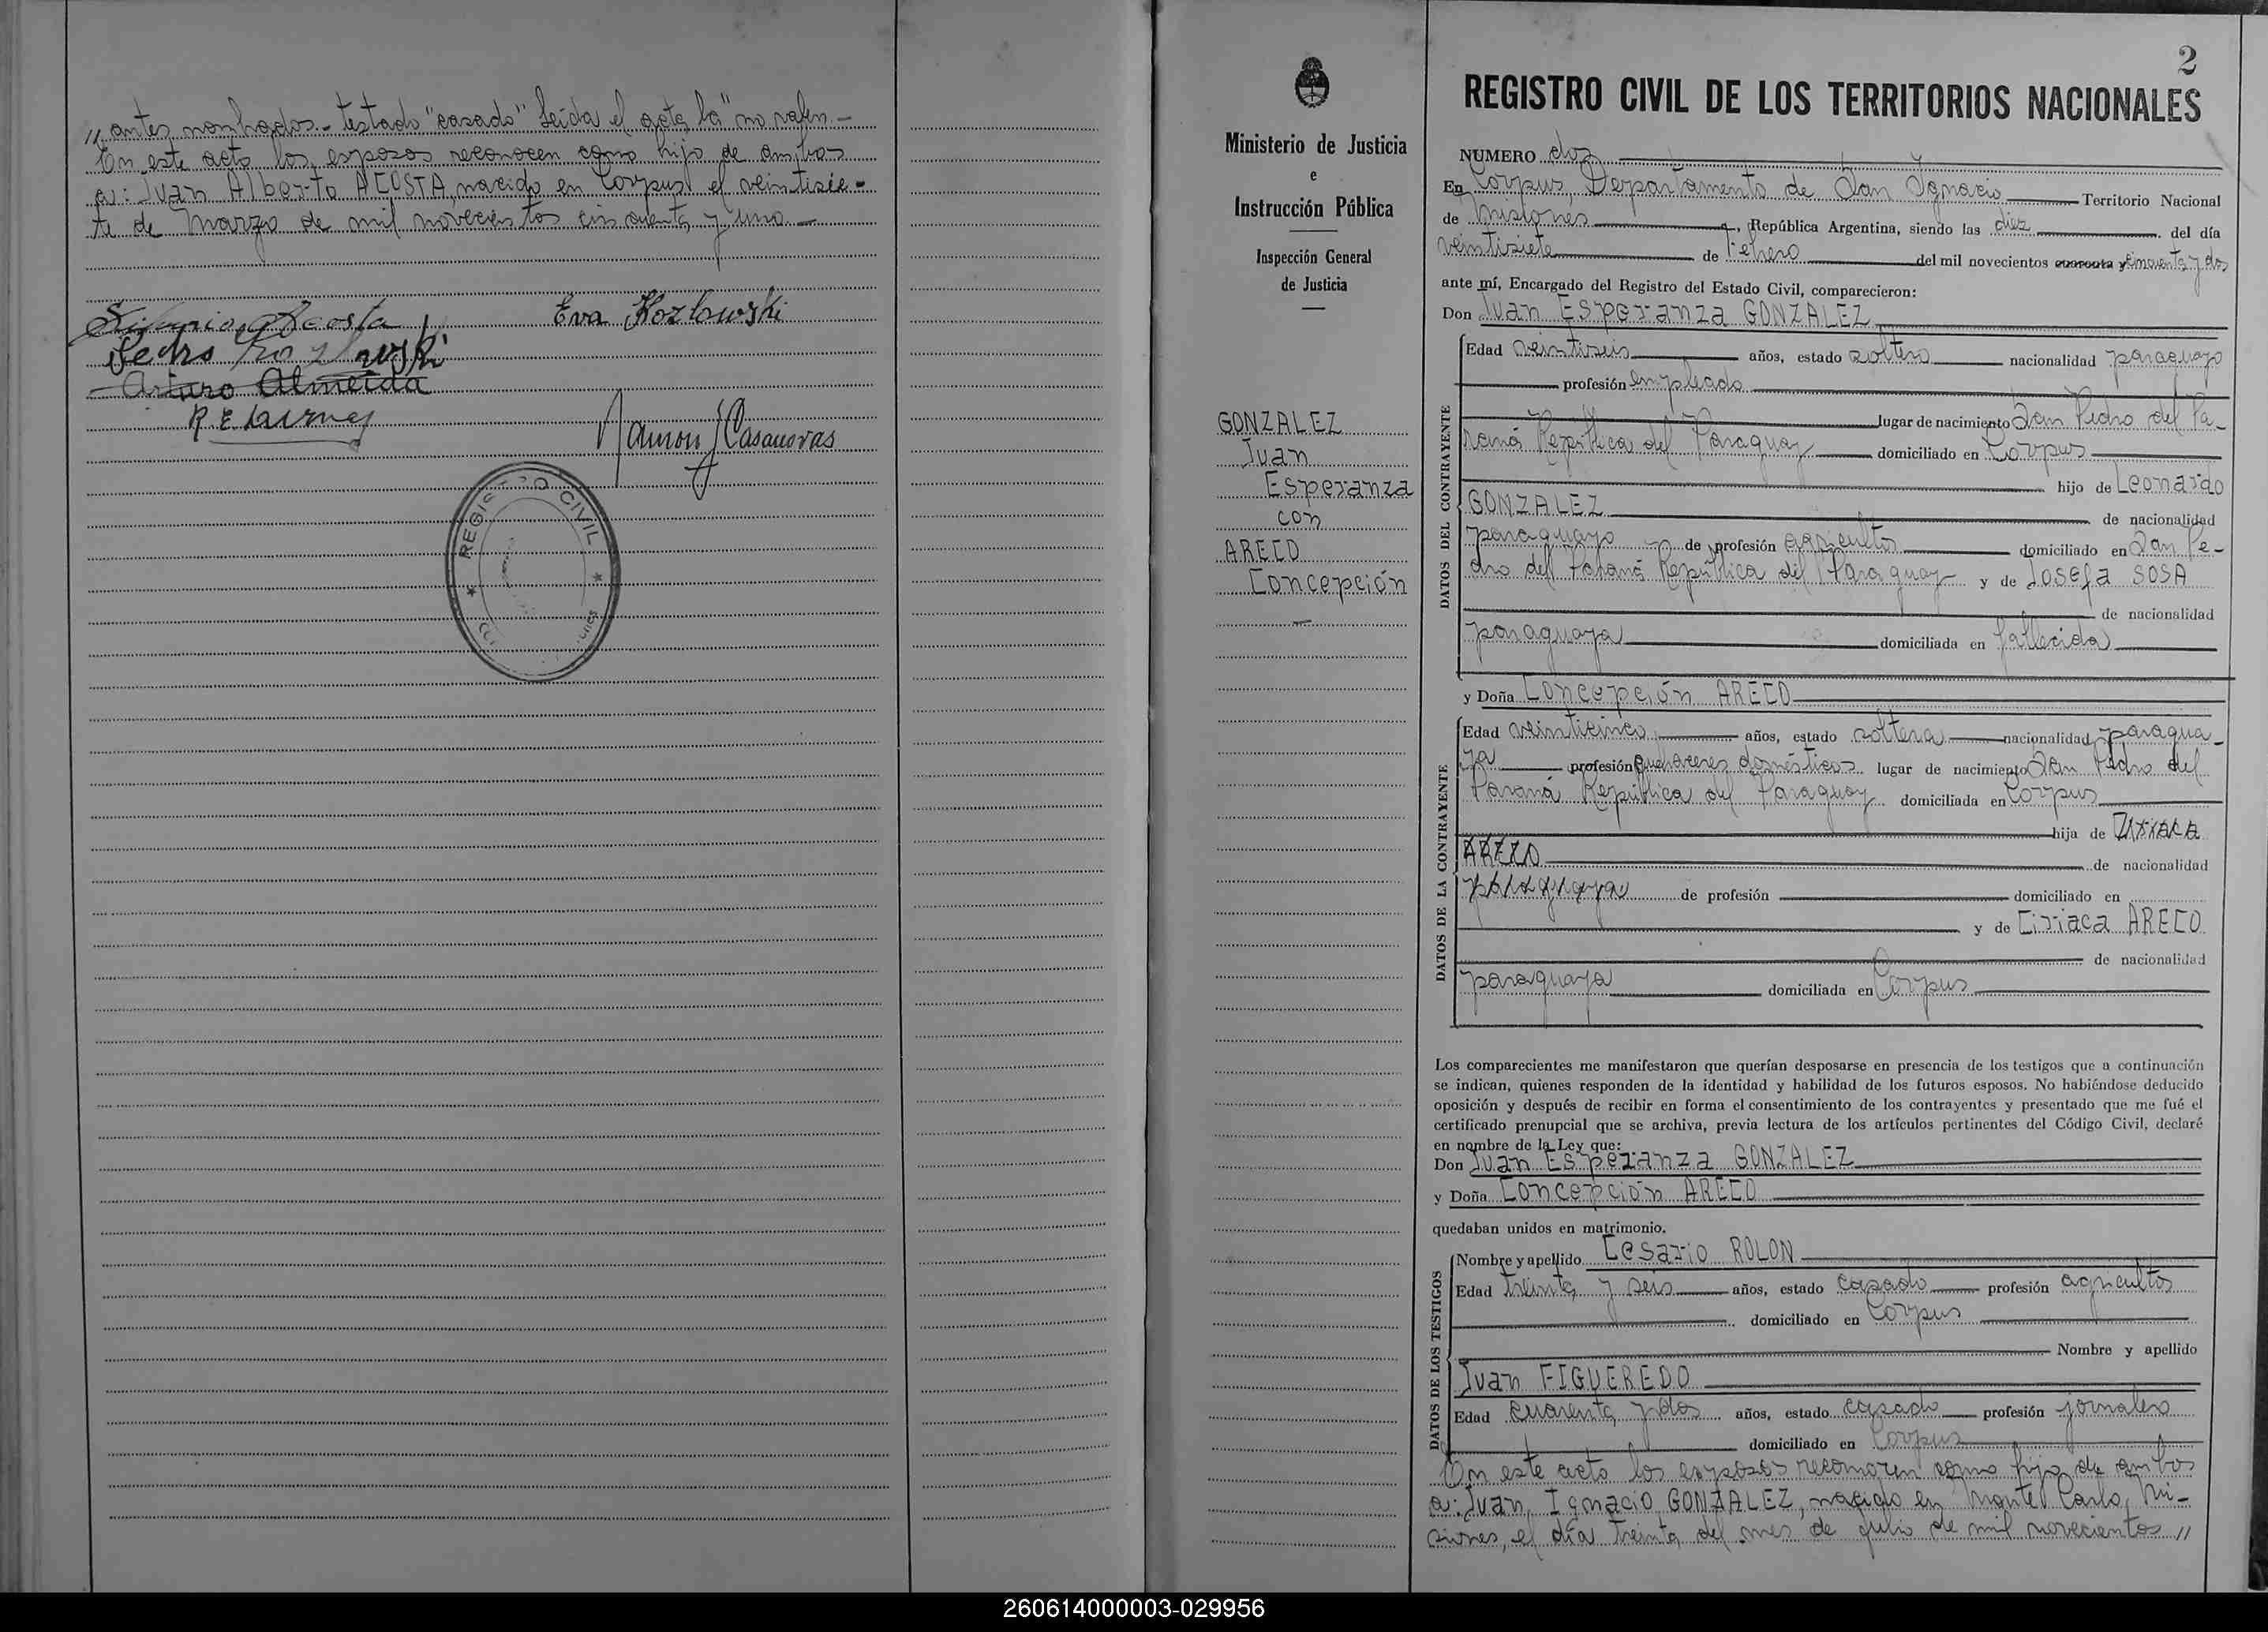 // antes nombrados.- testado "casado" Leida el acta la" no valen.-
En este acto los esposos reconocen como hijo de ambos
a: Juan Alberto ACOSTA, nacido en Corpus el veintisie-
te de Marzo de mil novecientos cincuenta y uno.-
Acosta Eva Kozlowski
Pedro Kozlowski
Arturo Almeida
Ramon J Casanovas
REGISTRO CIVIL
Ministerio de Justicia
e
Instrucción Pública
Inspección General
de Justicia
GONZALEZ
Juan
Esperanza
con
ARECO
Concepción
2
REGISTRO CIVIL DE LOS TERRITORIOS NACIONALES
NUMERO dos
En Corpus, Departamento de San Ignacio Territorio Nacional
de Misiones, República Argentina, siendo las diez del día
veintisiete de Febrero del mil novecientos cuarenta y cincuenta y dos
ante mí, Encargado del Registro del Estado Civil, comparecieron:
Don Juan Esperanza GONZALEZ
DATOS DEL CONTRAYENTE
Edad veintiseis años, estado soltero nacionalidad paraguayo
profesión empleado
lugar de nacimiento San Pedro del Pa-
raná República del Paraguay domiciliado en Corpus
hijo de Leonardo
GONZALEZ de nacionalidad
paraguayo de profesión agricultor domiciliado en San Pe-
dro del Paraná República del Paraguay y de Josefa SOSA
de nacionalidad
paraguaya domiciliada en fallecida
y Doña Concepción ARECO
DATOS DE LA CONTRAYENTE
Edad veinticinco años, estado soltera nacionalidad paragua-
ya profesión quehaceres domésticos lugar de nacimiento San Pedro del
Paraná República del Paraguay domiciliada en Corpus
hija de
ARECO de nacionalidad
paraguaya de profesión domiciliado en
y de Ciriaca ARECO
de nacionalidad
paraguaya domiciliada en Corpus
Los comparecientes me manifestaron que querían desposarse en presencia de los testigos que a continuación
se indican, quienes responden de la identidad y habilidad de los futuros esposos. No habiéndose deducido
oposición y después de recibir en forma el consentimiento de los contrayentes y presentado que me fué el
certificado prenupcial que se archiva, previa lectura de los artículos pertinentes del Código Civil, declaré
en nombre de la Ley que:
Don Juan Esperanza GONZALEZ
y Doña Concepción ARECO
quedaban unidos en matrimonio.
DATOS DE LOS TESTIGOS
Nombre y apellido Cesario ROLON
Edad treinta y seis años, estado casado profesión agricultor
domiciliado en Corpus
Nombre y apellido
Juan FIGUEREDO
Edad cuarenta y dos años, estado casado profesión jornalero
domiciliado en Corpus
En este acto los esposos reconocen como hijo de ambos
a: Juan Ignacio GONZALEZ, nacido en Monte Carlo, Mi-
siones, el día treinta del mes de julio de mil novecientos //
260614000003-029956